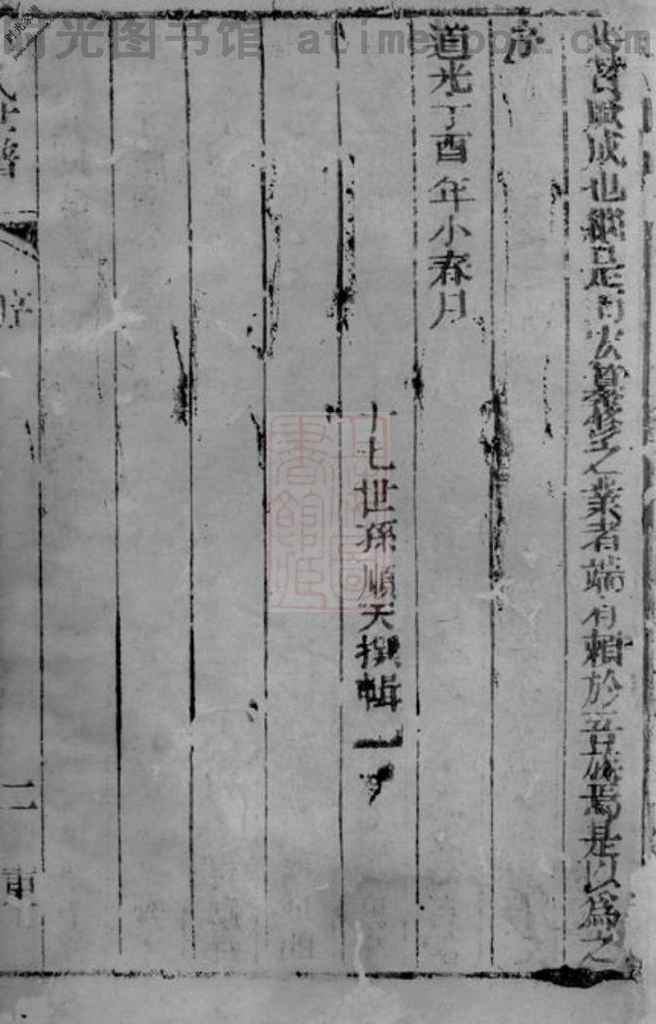 贊成也繼是而
修之業者端有賴於吾族焉是以為之
序
道光丁酉年小春月
十七世孫順天撰輯
譜
序
二
时光图书馆 atimebook.com